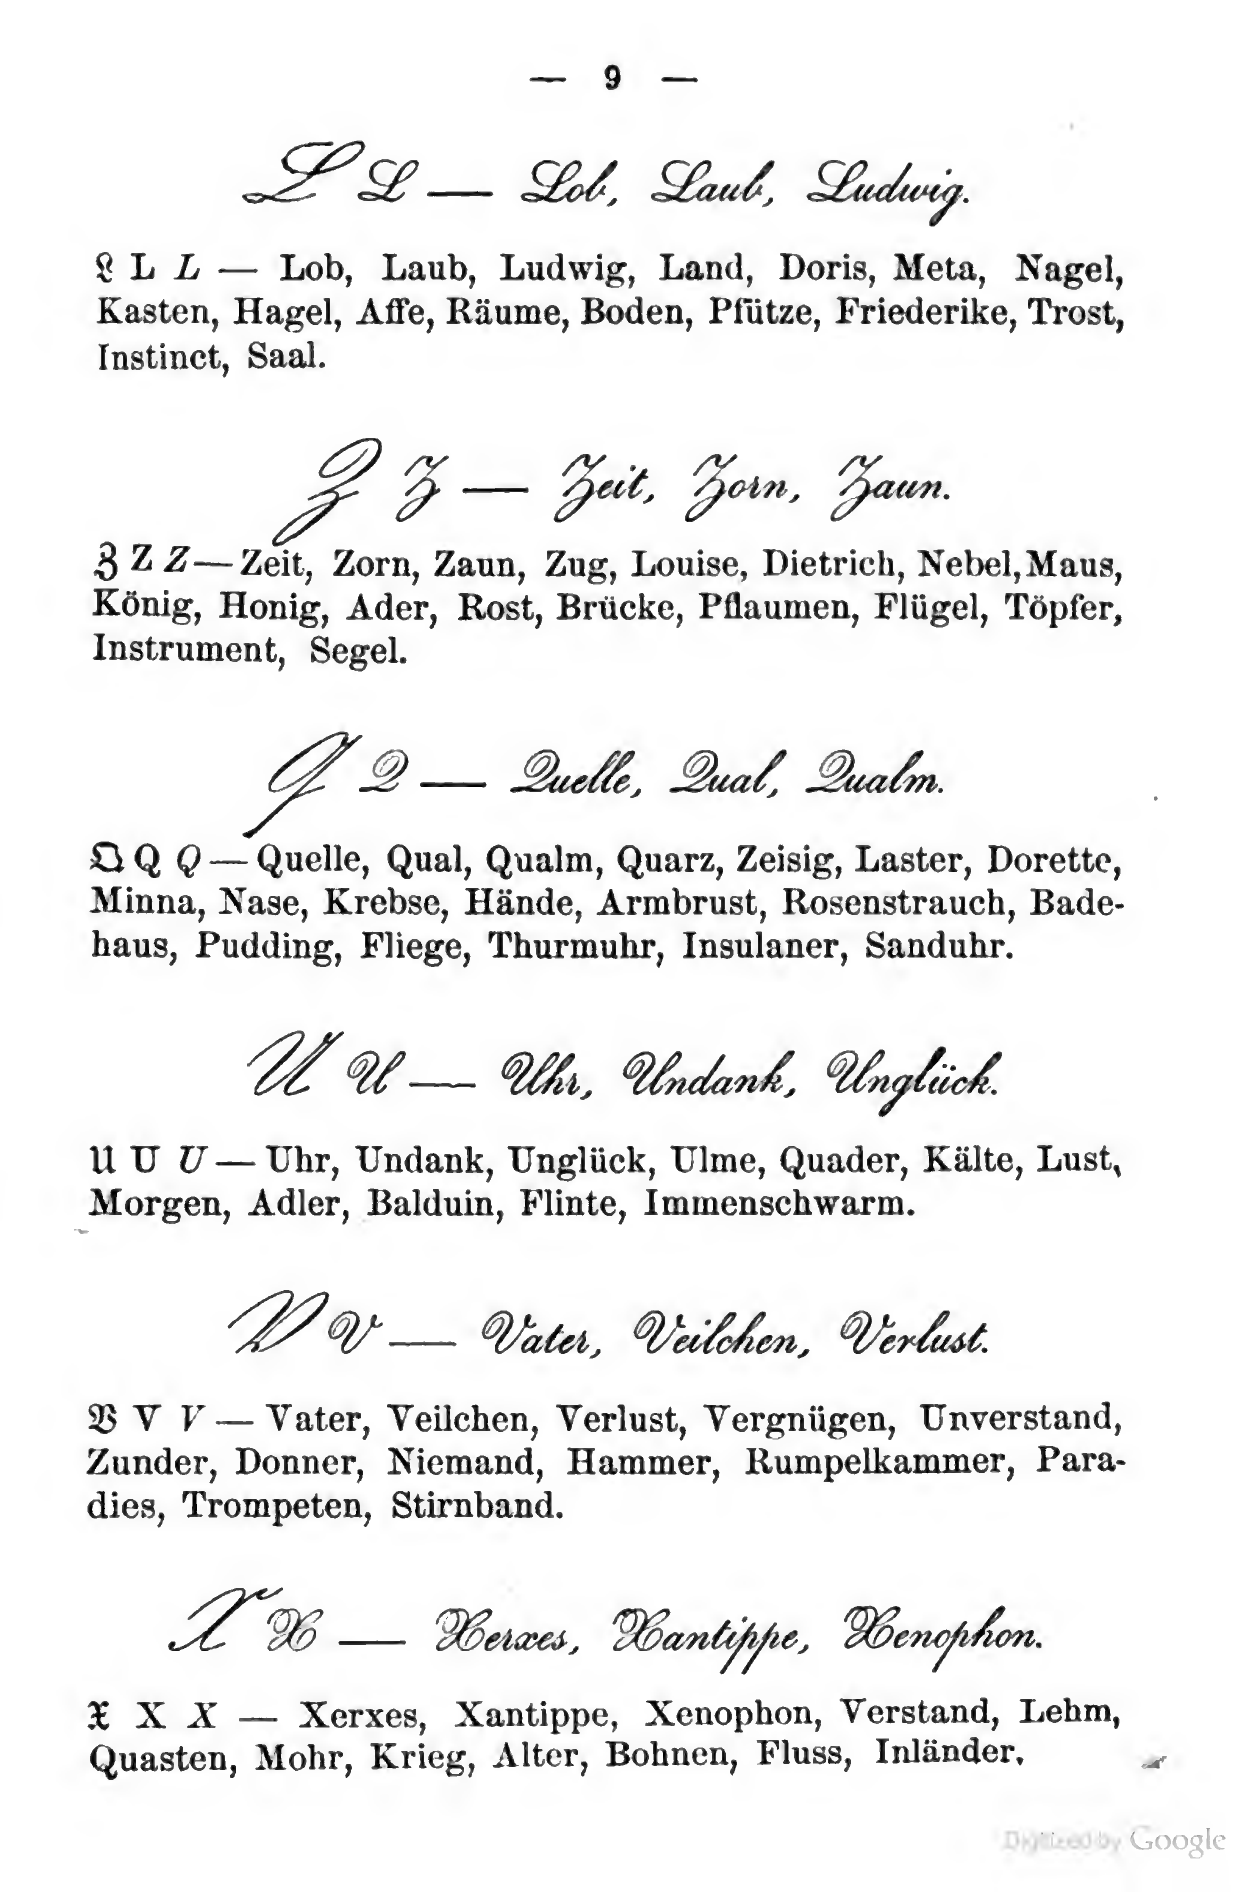 — 9 —
L L — Lob, Laub, Ludwig.
𝔏 L L — Lob, Laub, Ludwig, Land, Doris, Meta, Nagel,
Kasten, Hagel, Affe, Räume, Boden, Pfütze, Friederike, Trost,
Instinct, Saal.
Z Z — Zeit, Zorn, Zaun.
ℨ Z Z — Zeit, Zorn, Zaun, Zug, Louise, Dietrich, Nebel, Maus,
König, Honig, Ader, Rost, Brücke, Pflaumen, Flügel, Töpfer,
Instrument, Segel.
Q Q — Quelle, Qual, Qualm.
𝔔 Q Q — Quelle, Qual, Qualm, Quarz, Zeisig, Laster, Dorette,
Minna, Nase, Krebse, Hände, Armbrust, Rosenstrauch, Bade-
haus, Pudding, Fliege, Thurmuhr, Insulaner, Sanduhr.
U U — Uhr, Undank, Unglück.
𝔘 U U — Uhr, Undank, Unglück, Ulme, Quader, Kälte, Lust,
Morgen, Adler, Balduin, Flinte, Immenschwarm.
V V — Vater, Veilchen, Verlust.
𝔙 V V — Vater, Veilchen, Verlust, Vergnügen, Unverstand,
Zunder, Donner, Niemand, Hammer, Rumpelkammer, Para-
dies, Trompeten, Stirnband.
X X — Xerxes, Xantippe, Xenophon.
𝔛 X X — Xerxes, Xantippe, Xenophon, Verstand, Lehm,
Quasten, Mohr, Krieg, Alter, Bohnen, Fluss, Inländer.
Digitized by Google